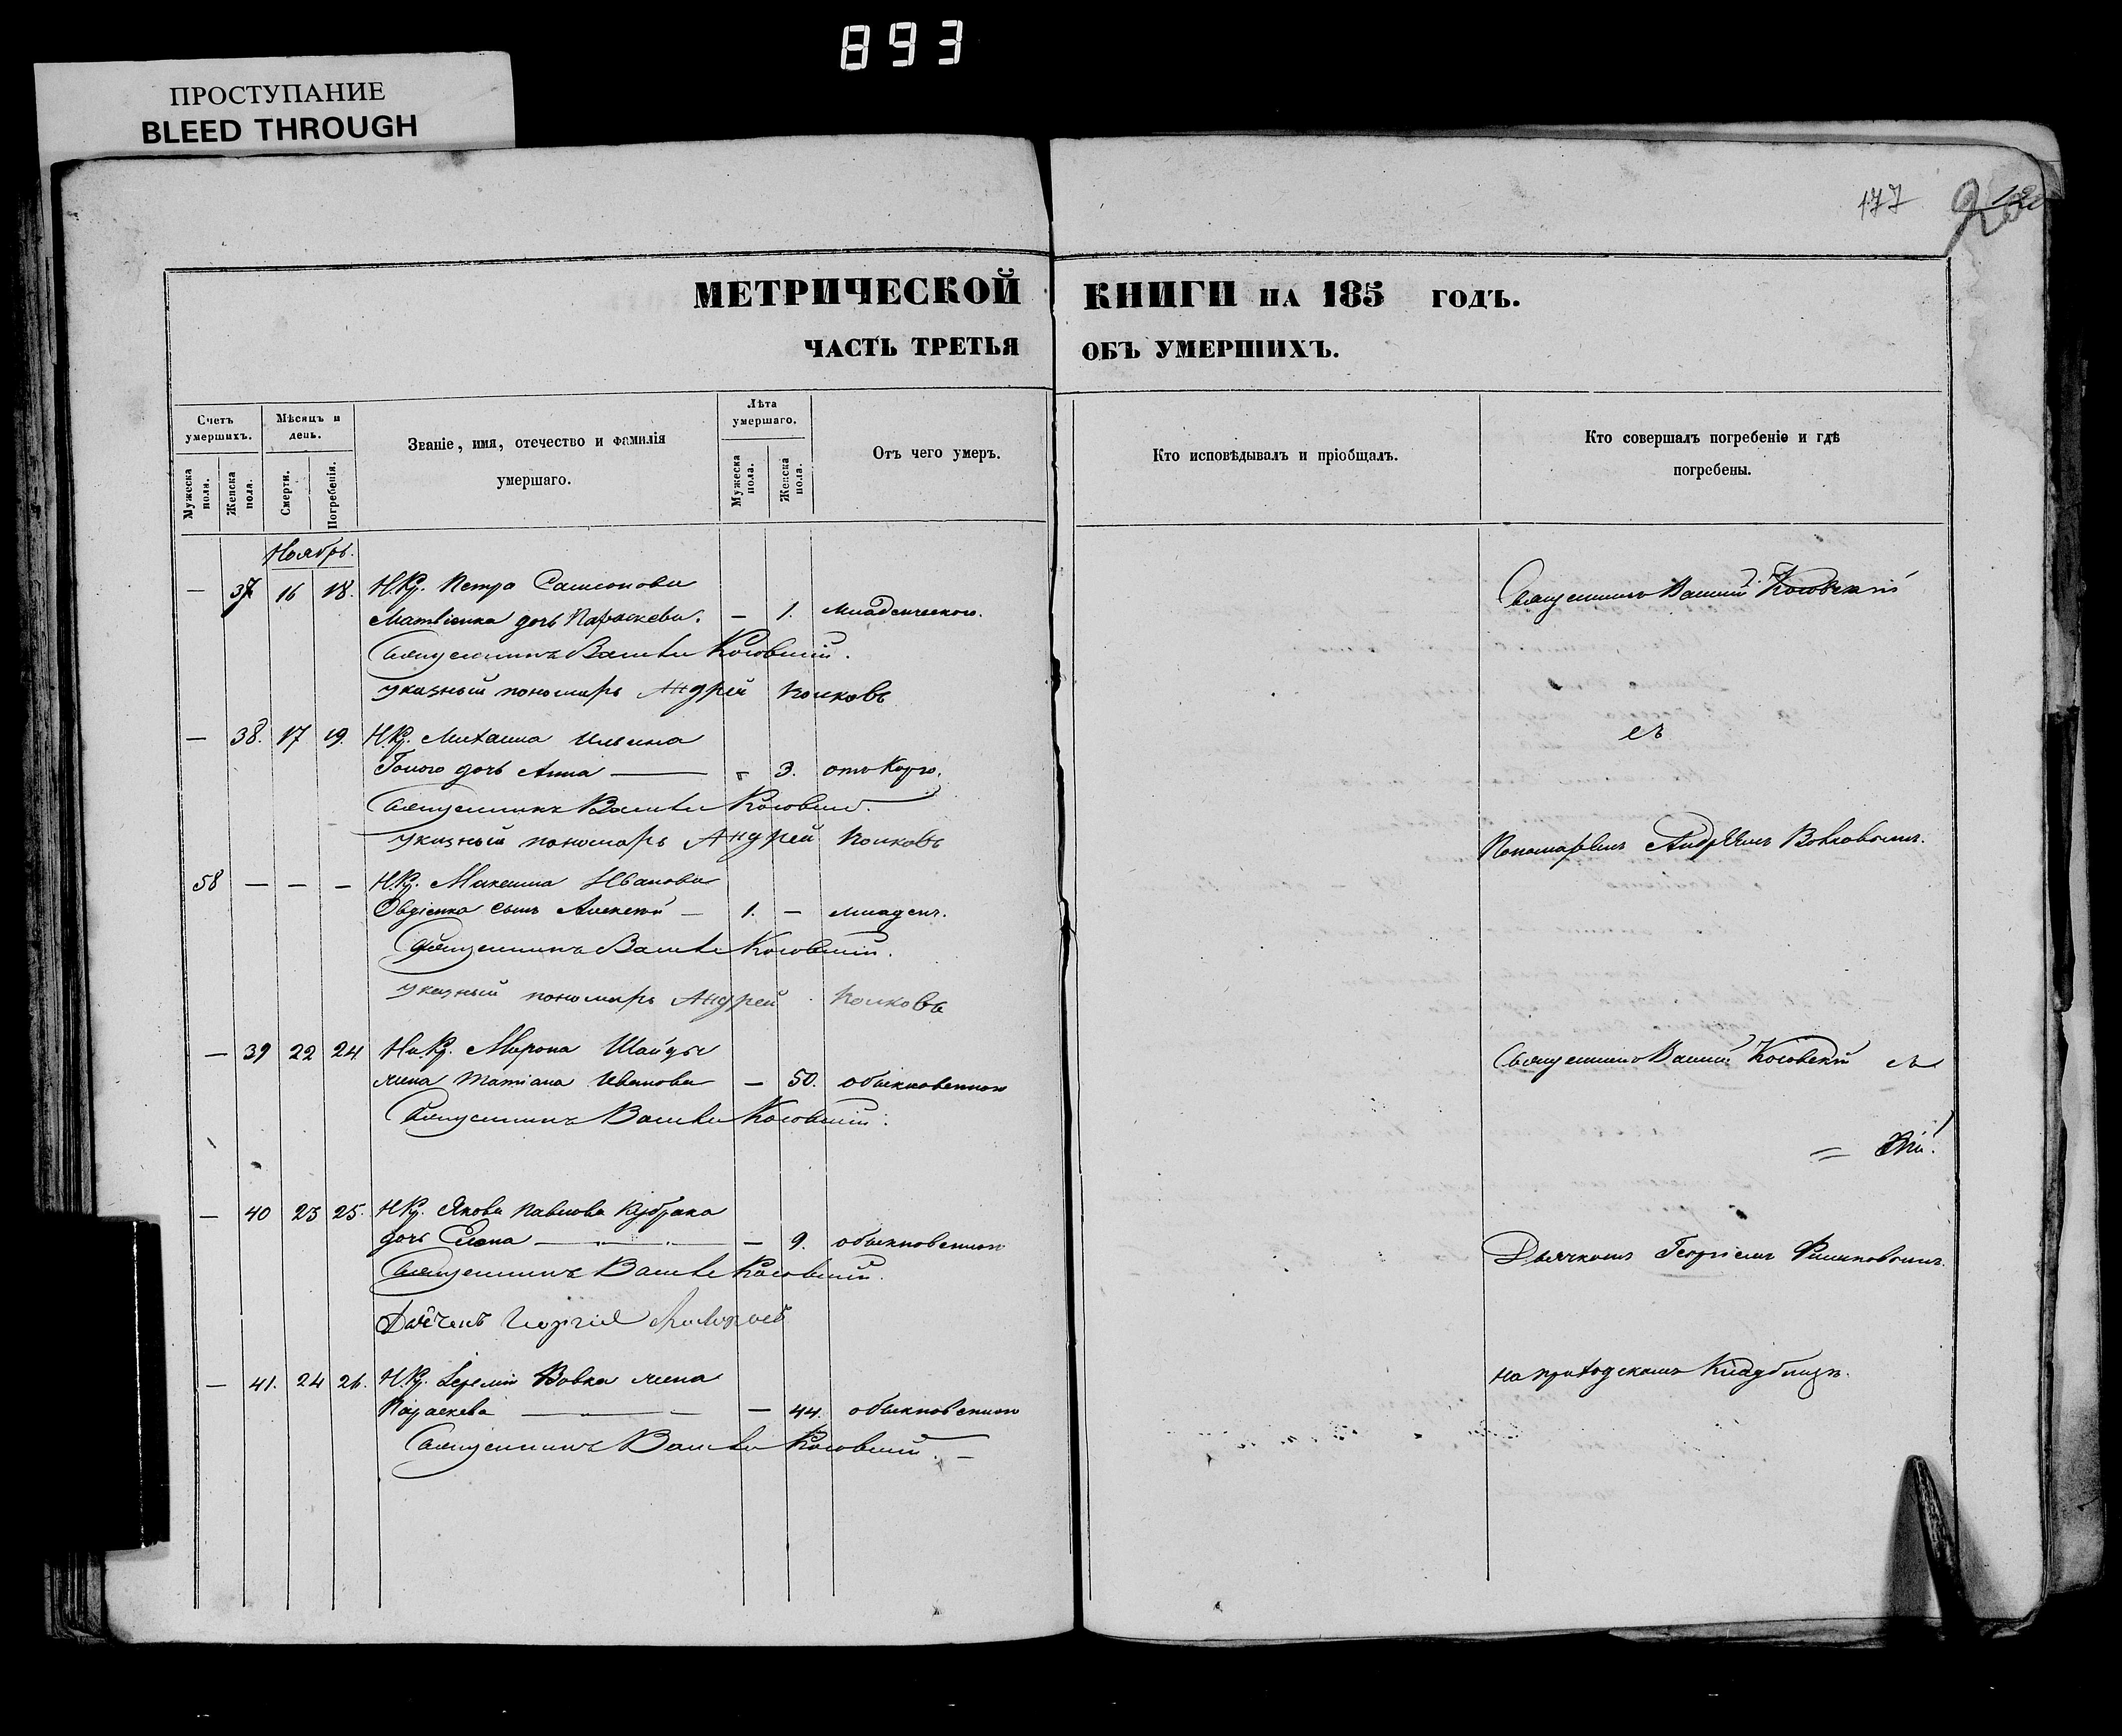 893
ПРОСТУПАНИЕ
BLEED THROUGH
177
МЕТРИЧЕСКОЙ КНИГИ НА 185 ГОДЪ.
ЧАСТЬ ТРЕТЬЯ ОБЪ УМЕРШИХЪ.
Счетъ умершихъ.
Мужеска пола.
Женска пола.
Мѣсяцъ и день.
Смерти.
Погребенія.
Званіе, имя, отечество и фамилія умершаго.
Лѣта умершаго.
Мужеска пола.
Женска пола.
Отъ чего умеръ.
Кто исповѣдывалъ и пріобщалъ.
Кто совершалъ погребеніе и гдѣ погребены.
Ноябрь.
— 37 16 18. Н.Кр. Петра Самсонова
Матвіенка дочь Параскева. — 1. младенческого.
Священникъ Василій Косовскій.
указный пономарь Андрей Волковъ
— 38. 17 19. Н.Кр. Михаила Ильина
Голого дочь Анна — 3. отъ Корю.
Священникъ Василій Косовскій.
указный пономарь Андрей Волковъ
58 — — — Н.Кр. Максима Иванова
Овдіенка сынъ Алексѣй — 1. — младенч.
Священникъ Василій Косовскій.
указный пономарь Андрей Волковъ
— 39 22 24 Н.Кр. Мирона Шайды
жена Татіана Иванова — 50. обыкновенною
Священникъ Василій Косовскій.
— 40 23 25. Н.Кр. Якова Павлова Кубрака
дочь Елена — 9. обыкновенною
Священникъ Василій Косовскій.
Дьячекъ Георгій
— 41. 24 26. Н.Кр. Іеремія Вовка жена
Параскева — 44. обыкновенною
Священникъ Василій Косовскій. —
Священникъ Василій Косовскій
съ
Пономаремъ Андреемъ Волковымъ.
Священникъ Василій Косовскій съ
Дьячкомъ Георгіемъ Филиповымъ.
на приходскомъ Кладбищѣ.